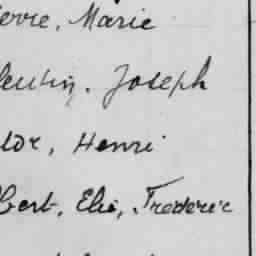 ierre, Marie
lentin, Joseph
dor, Henri
lbert, Elie, Frederic